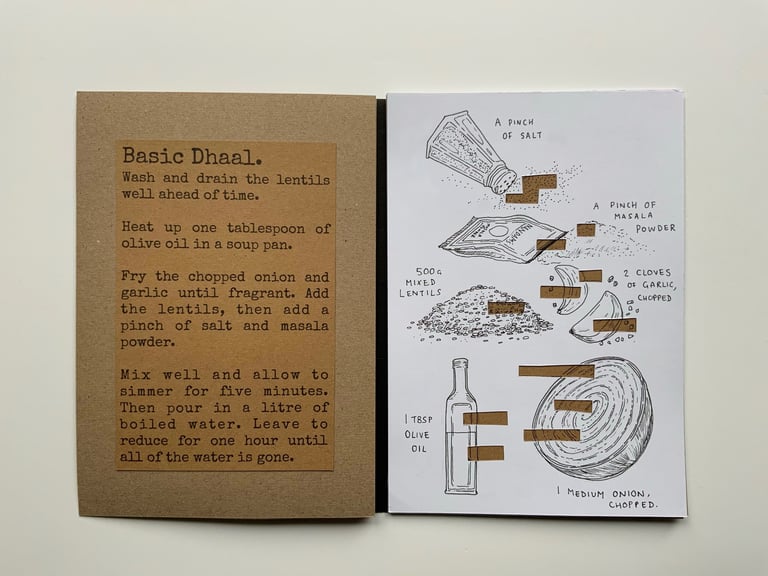 Basic Dhaal.
Wash and drain the lentils
well ahead of time.
Heat up one tablespoon of
olive oil in a soup pan.
Fry the chopped onion and
garlic until fragrant. Add
the lentils, then add a
pinch of salt and masala
powder.
Mix well and allow to
simmer for five minutes.
Then pour in a litre of
boiled water. Leave to
reduce for one hour until
all of the water is gone.
A PINCH
OF SALT
A PINCH OF
MASALA
POWDER
500G
MIXED
LENTILS
2 CLOVES
OF GARLIC,
CHOPPED
1 TBSP
OLIVE
OIL
1 MEDIUM ONION,
CHOPPED.